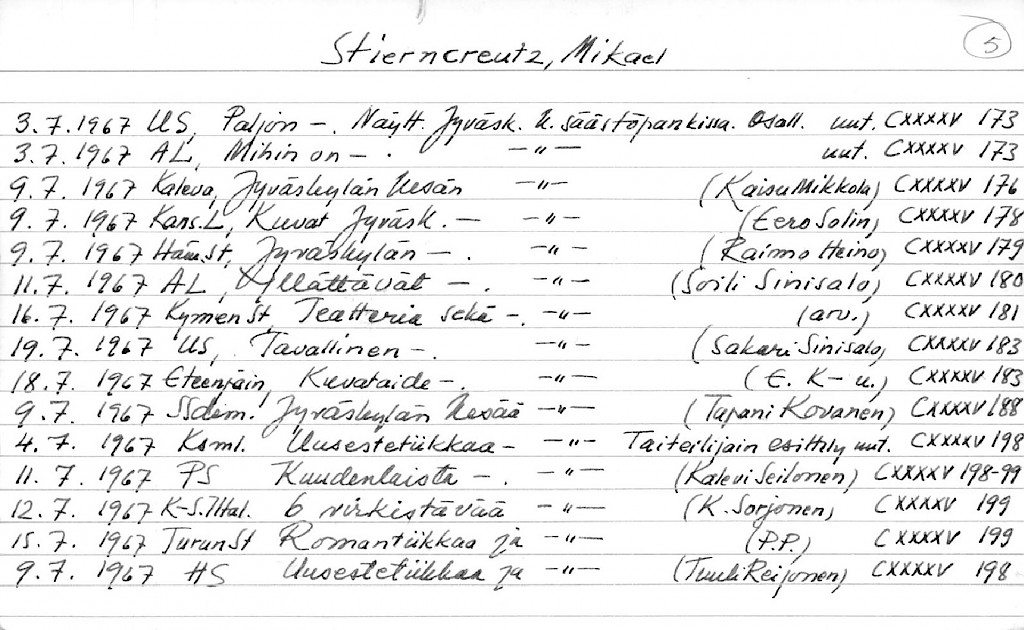 Stierncreutz, Mikael 5
3.7.1967 US, Paljon -. Näytt. Jyväsk. K. säästöpankissa. Osall. uut. CXXXXV 173
3.7.1967 AL, Mihin on - . -"- uut. CXXXXV 173
9.7.1967 Kaleva, Jyväskylän Kesän -"- (Kaisu Mikkola) CXXXXV 176
9.7.1967 Kans.L, Kuvat Jyväsk. - -"- (Eero Solin) CXXXXV 178
9.7.1967 HämSt, Jyväskylän - . -"- (Raimo Heino) CXXXXV 179
11.7.1967 AL, Yllättävät - . -"- (Soili Sinisalo) CXXXXV 180
16.7.1967 KymenSt, Teatteria sekä -. -"- (arv.) CXXXXV 181
19.7.1967 US, Tavallinen -. -"- (Sakari Sinisalo) CXXXXV 183
18.7.1967 Eteenpäin, Kuvataide -. -"- (E. K-u.) CXXXXV 183
9.7.1967 SSdem. Jyväskylän Kesää -"- (Tapani Kovanen) CXXXXV 188
4.7.1967 Ksml. Uusestetiikkaa - -"- Taiteilijain esittely uut. CXXXXV 198
11.7.1967 PS Kuudenlaista - . -"- (Kalevi Seilonen) CXXXXV 198-99
12.7.1967 K-S.Iltal. 6 virkistävää -"- (K. Sorjonen) CXXXXV 199
15.7.1967 TurunSt Romantiikkaa ja -"- (P.P.) CXXXXV 199
9.7.1967 HS Uusestetiikkaa ja -"- (Tuuli Reijonen) CXXXXV 198